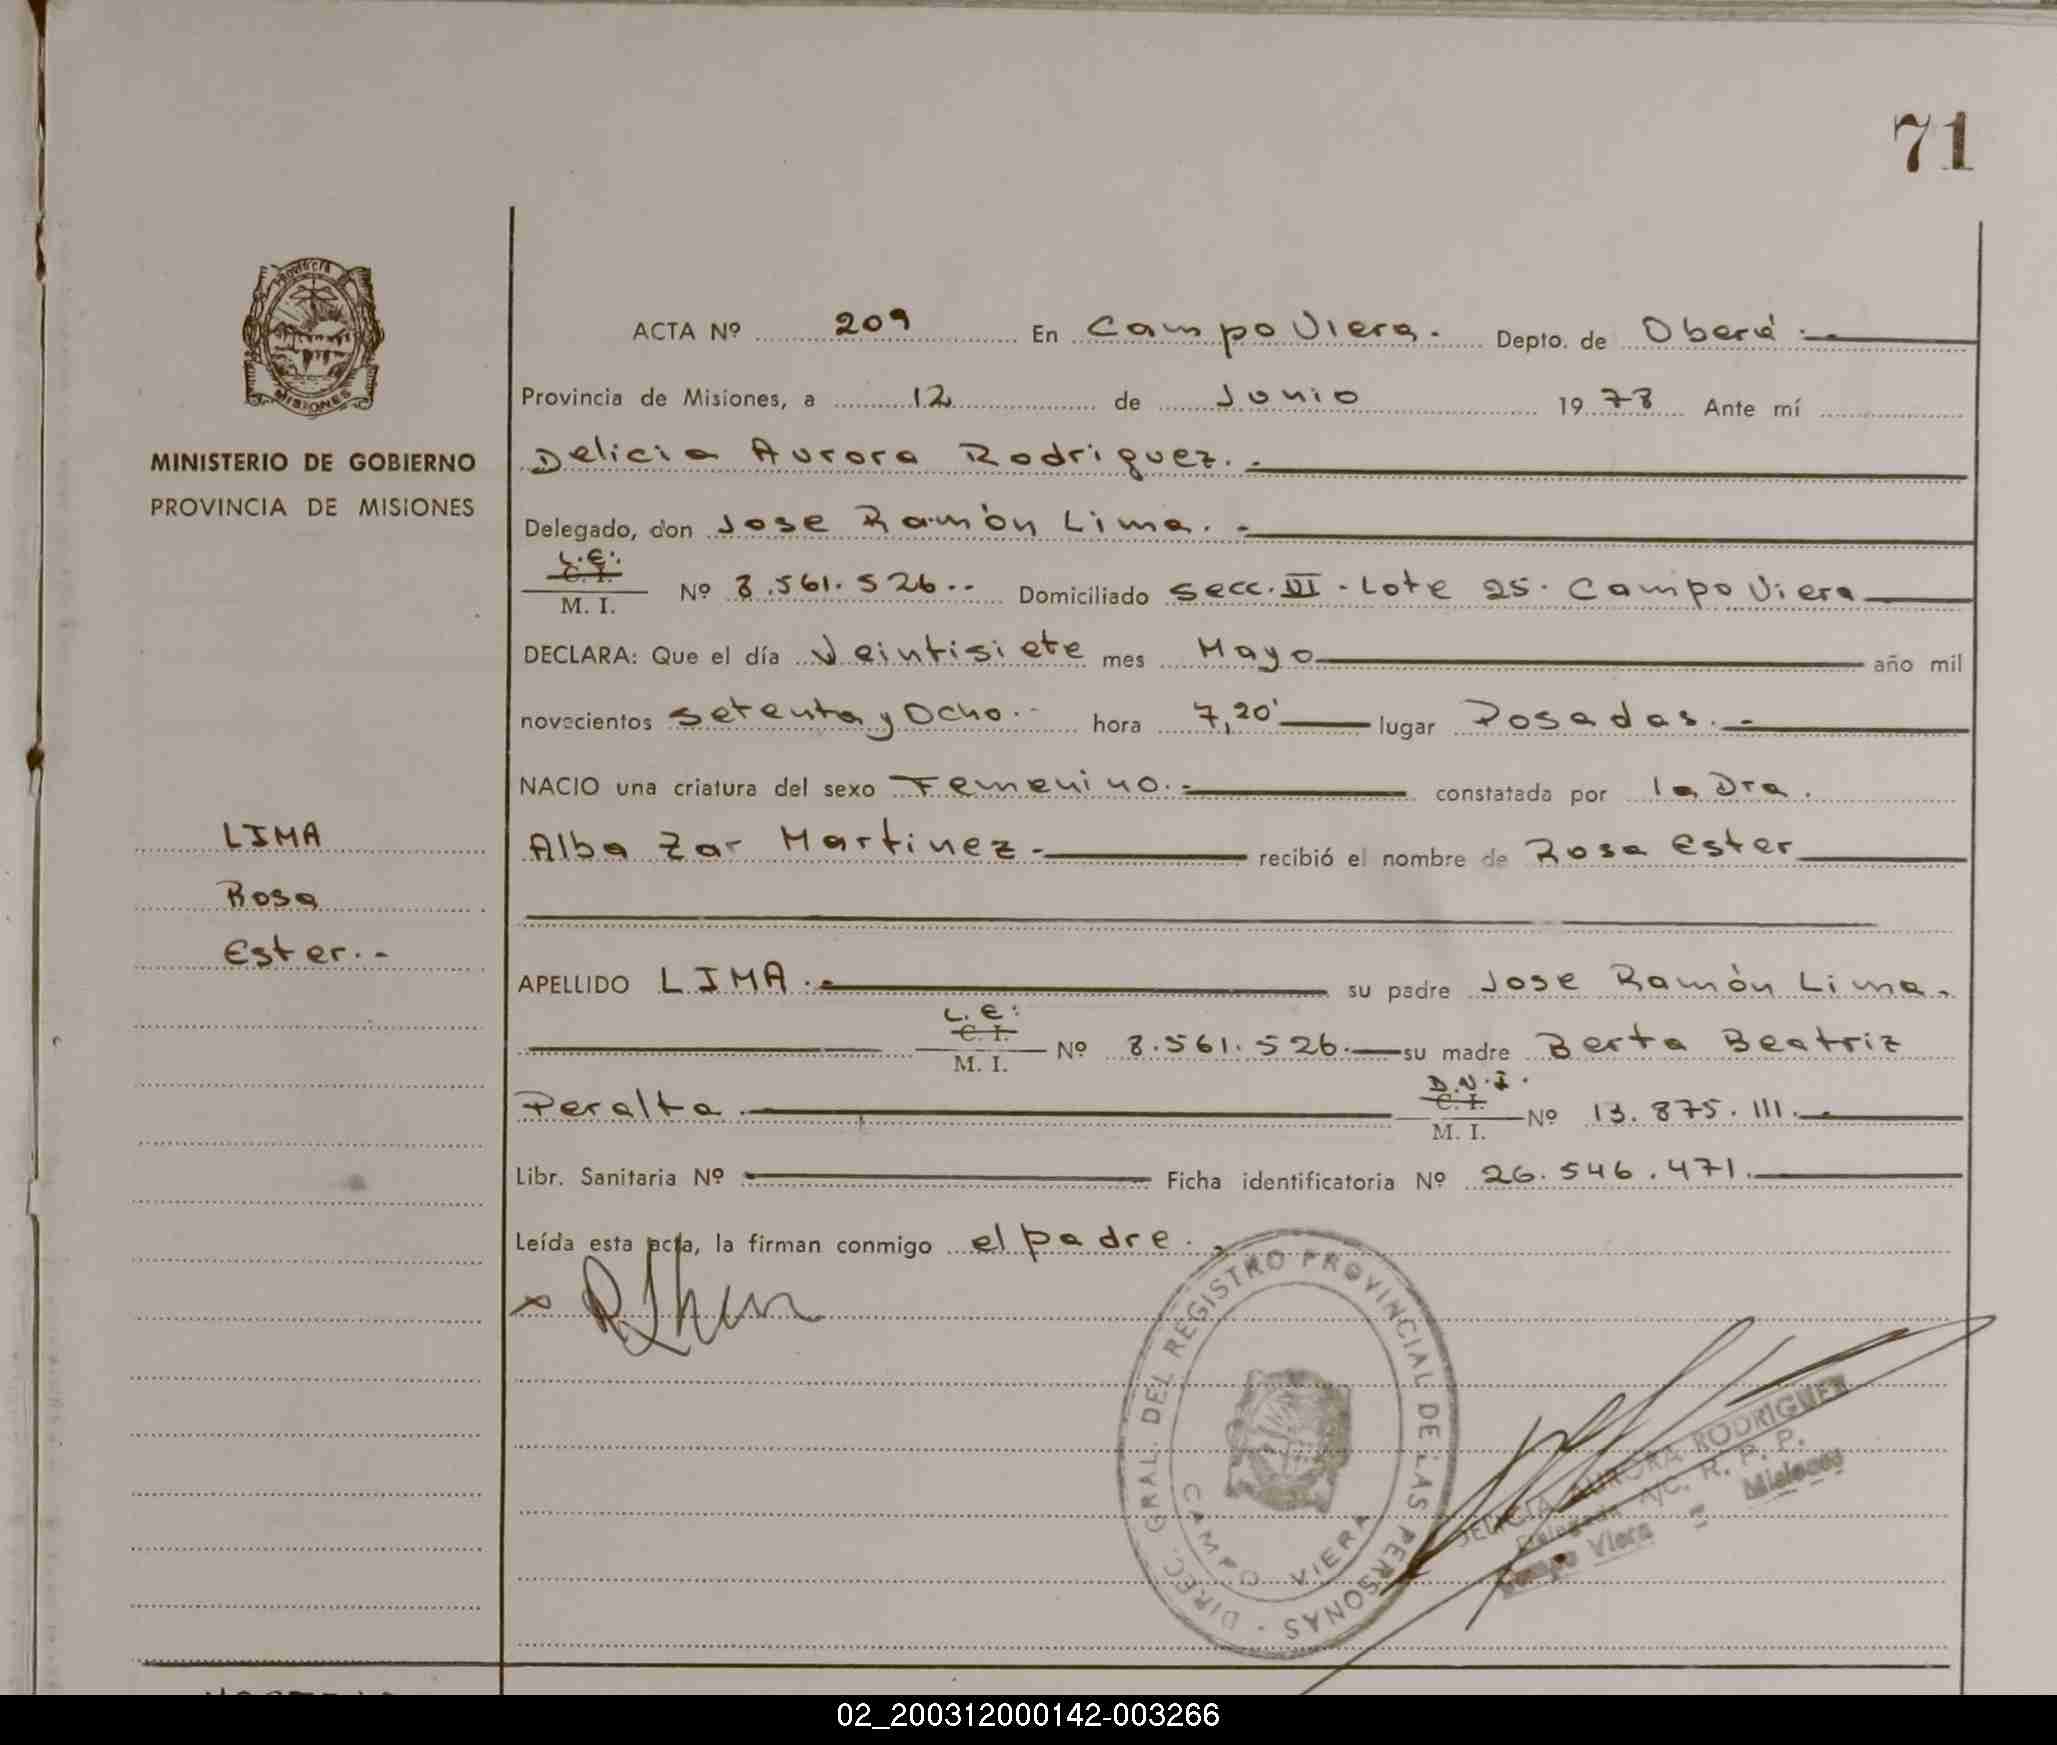 71
Provincia
MISIONES
MINISTERIO DE GOBIERNO
PROVINCIA DE MISIONES
LIMA
Rosa
Ester.-
ACTA Nº 209 En Campo Viera. Depto. de Oberá.
Provincia de Misiones, a 12 de Junio 1978 Ante mí
Delicia Aurora Rodriguez.-
Delegado, don Jose Ramón Lima.-
L.E.
C. I.
M. I. Nº 8.561.526.- Domiciliado Secc. VI - Lote 25. Campo Viera
DECLARA: Que el día Veintisiete mes Mayo año mil
novecientos Setenta y Ocho.- hora 7,20' lugar Posadas.-
NACIO una criatura del sexo Femenino.- constatada por la Dra.
Alba Zar Martinez.- recibió el nombre de Rosa Ester
APELLIDO LIMA.- su padre Jose Ramón Lima.
L.E:
C. I.
M. I. Nº 8.561.526.- su madre Berta Beatriz
Peralta.- D.N.I.
C. I.
M. I. Nº 13.875.111.-
Libr. Sanitaria Nº Ficha identificatoria Nº 26.546.471.
Leída esta acta, la firman conmigo el padre.-
DIREC. GRAL. DEL REGISTRO PROVINCIAL DE LAS PERSONAS
CAMPO VIERA
DELICIA AURORA RODRIGUEZ
Delegada A/C. R. P. P.
Campo Viera - Misiones
02_200312000142-003266